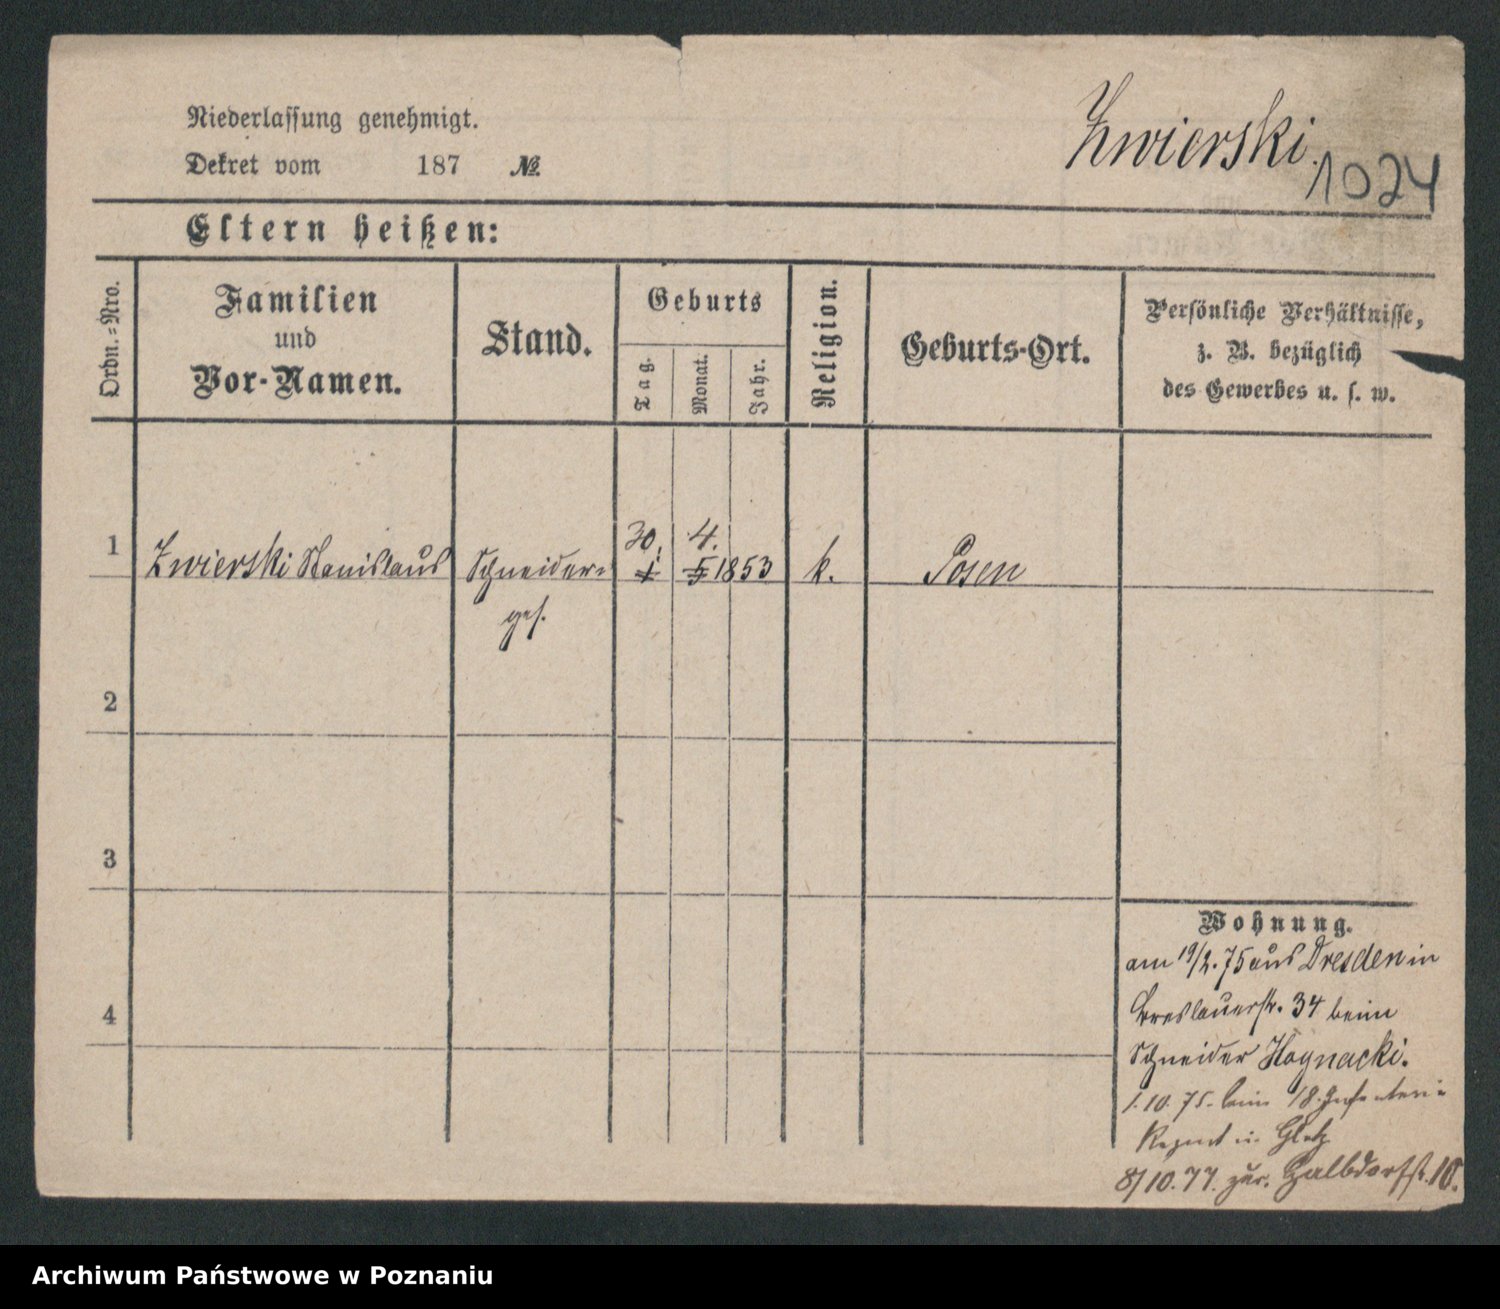 Niederlassung genehmigt.
Dekret vom 187 №
Zwierski.
1024
Eltern heißen:
Ordn.=Nro.
Familien
und
Vor-Namen.
Stand.
Geburts
Tag.
Monat.
Jahr.
Religion.
Geburts-Ort.
Persönliche Verhältnisse,
z. B. bezüglich
des Gewerbes u. s. w.
30. 4.
1 Zwierski Stanislaus Schneider= 1 5 1853 k. Posen
ges.
2
3
4
Wohnung.
am 19/2. 75 aus Dresden in
Breslauerstr. 34 beim
Schneider Hoynacki.
1. 10. 75. beim 18. Infanterie
Regmt in Glatz
8/10. 77. zur. Halbdorfst. 10.
Archiwum Państwowe w Poznaniu